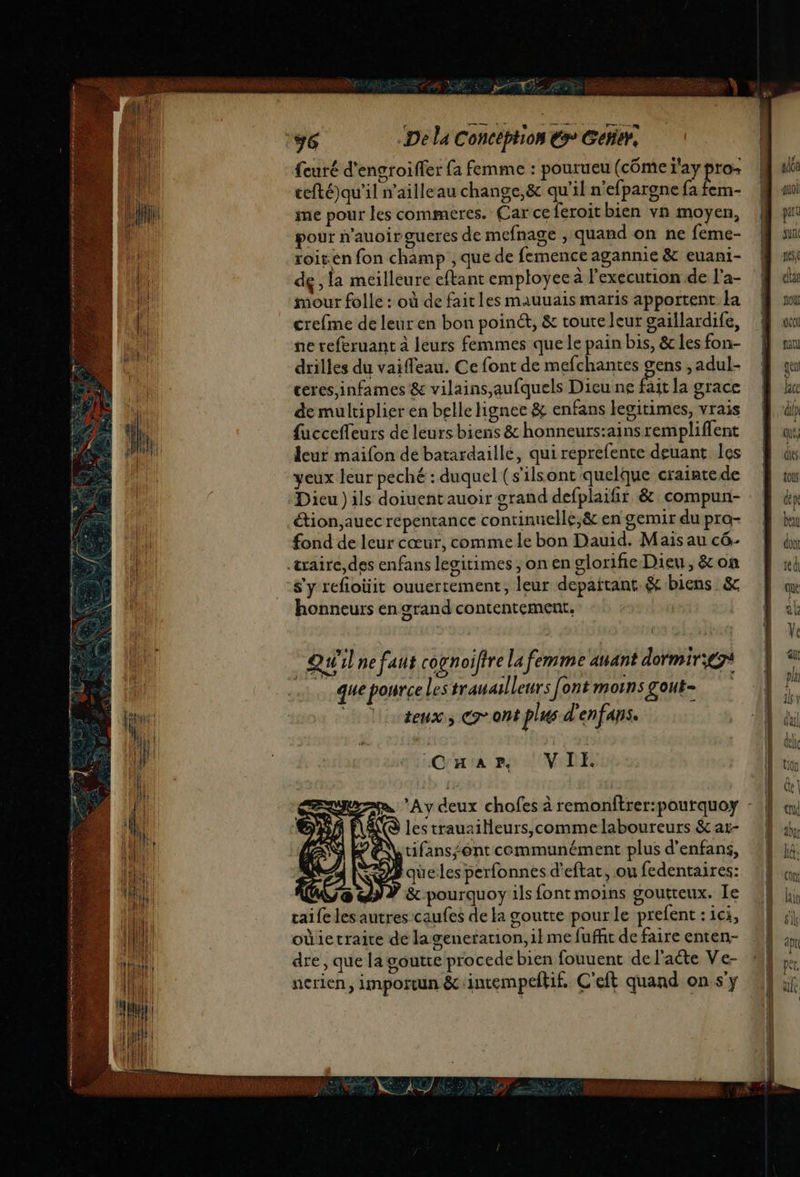 96 De la Conception & Gener,
ſeuré d'engroiſſer ſa femme : pourueu (cõme i'ay pro-
teſté)qu'il n'aille au change,& qu'il n'eſpargne ſa fem-
me pour les commeres. Car ce ſeroit bien vn moyen,
pour n'auoir gueres de meſnage , quand on ne ſeme-
roit en ſon champ , que de ſemence agannie & euani-
de , la meilleure eſtant employee à l'execution de l'a-
mour folle : où de fait les mauuais maris apportent la
creſme de leur en bon poinct, & toute leur gaillardiſe,
ne reſeruant à leurs femmes que le pain bis, & les fon-
drilles du vaiſſeau. Ce ſont de meſchantes gens , adul-
teres,infames & vilains,auſquels Dieu ne fait la grace
de multiplier en belle lignee & enfans legitimes, vrais
ſucceſſeurs de leurs biens & honneurs:ains rempliſſent
leur maiſon de batardaille, qui repreſente deuant les
yeux leur peché : duquel ( s'ils ont quelque crainte de
Dieu ) ils doiuent auoir grand deſplaiſir & compun-
ction,auec repentance continuelle,& en gemir du pro-
fond de leur cœur, comme le bon Dauid. Mais au cõ-
traire,des enfans legitimes , on en glorifie Dieu , & on
s'y reſioüit ouuertement, leur departant & biens &
honneurs en grand contentement.
Qu'il ne faut cognoiſtre la femme auant dormir:&
que pource les trauailleurs ſont moins gout-
teux , & ont plus d'enfans.
CHAP. VII.
I'Ay deux choſes à remonſtrer:pourquoy
les trauailleurs,comme laboureurs & ar-
tiſans,ont communément plus d'enfans,
que les perſonnes d'eſtat , ou ſedentaires:
& pourquoy ils ſont moins goutteux. Ie
taiſe les autres cauſes de la goutte pour le preſent : ici,
où ie traite de la generation,il me ſuffit de faire enten-
dre , que la goutte procede bien ſouuent de l'acte Ve-
nerien , importun & intempeſtif. C'eſt quand on s'y